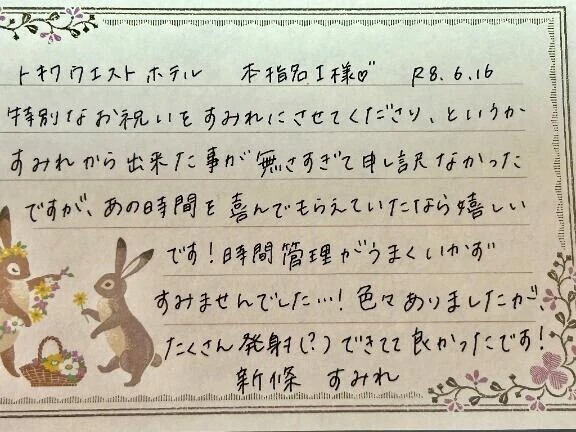 トキワウエストホテル 本指名I様♡ R8.6.16
特別なお祝いをすみれにさせてくださり、というか
すみれから出来た事が無さすぎて申し訳なかった
ですが、あの時間を喜んでもらえていたなら嬉しい
です!時間管理がうまくいかず
すみませんでした…!色々ありましたが、
たくさん発射(?)できてて良かったです!
新條 すみれ